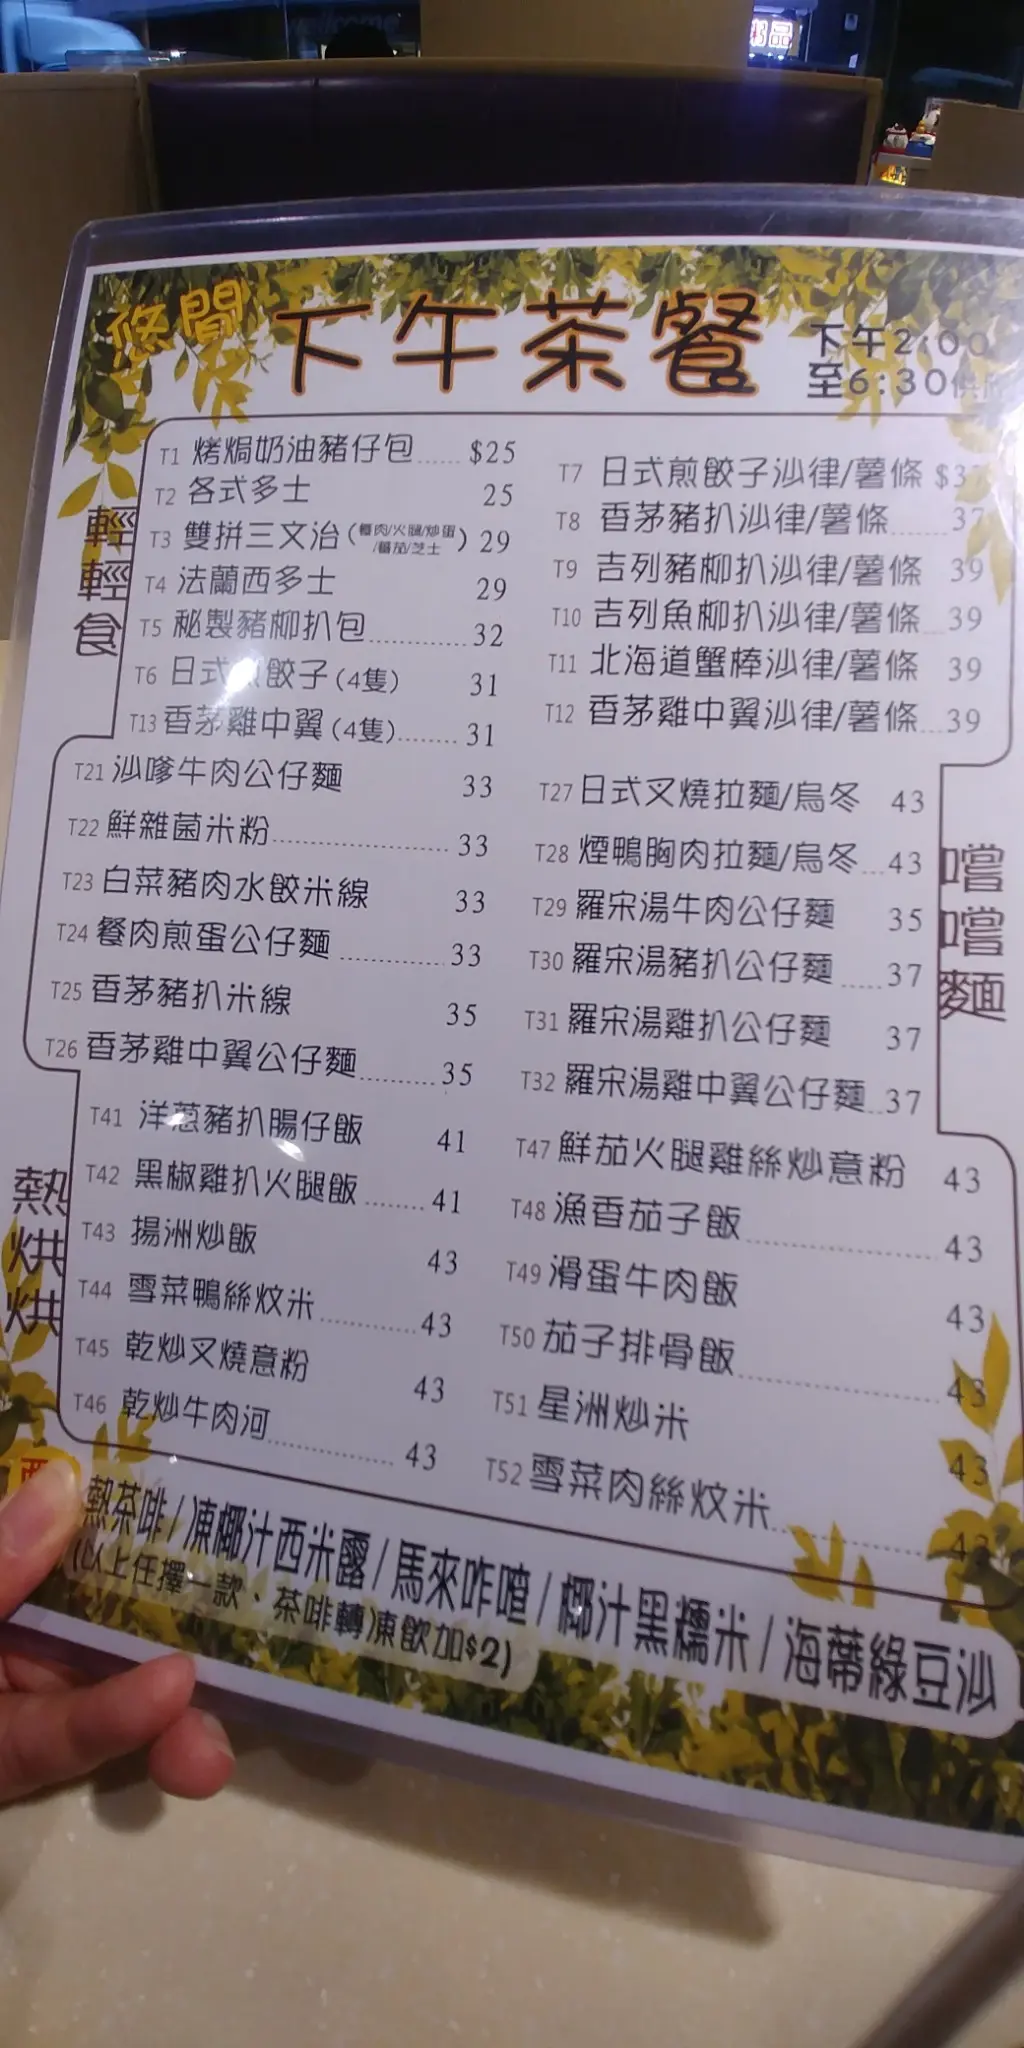 粥品
悠閒 下午茶餐
下午2:00
至6:30供應
輕輕食
T1 烤焗奶油豬仔包...... $25
T2 各式多士 25
T3 雙拼三文治(餐肉/火腿/炒蛋/蕃茄/芝士) 29
T4 法蘭西多士 29
T5 秘製豬柳扒包 32
T6 日式煎餃子(4隻) 31
T13 香茅雞中翼(4隻) 31
T7 日式煎餃子沙律/薯條 $37
T8 香茅豬扒沙律/薯條 37
T9 吉列豬柳扒沙律/薯條 39
T10 吉列魚柳扒沙律/薯條 39
T11 北海道蟹棒沙律/薯條 39
T12 香茅雞中翼沙律/薯條 39
嚐嚐麵
T21 沙嗲牛肉公仔麵 33
T22 鮮雜菌米粉 33
T23 白菜豬肉水餃米線 33
T24 餐肉煎蛋公仔麵 33
T25 香茅豬扒米線 35
T26 香茅雞中翼公仔麵 35
T27 日式叉燒拉麵/烏冬 43
T28 煙鴨胸肉拉麵/烏冬 43
T29 羅宋湯牛肉公仔麵 35
T30 羅宋湯豬扒公仔麵 37
T31 羅宋湯雞扒公仔麵 37
T32 羅宋湯雞中翼公仔麵 37
熱烘烘
T41 洋蔥豬扒腸仔飯 41
T42 黑椒雞扒火腿飯 41
T43 揚洲炒飯 43
T44 雪菜鴨絲炆米 43
T45 乾炒叉燒意粉 43
T46 乾炒牛肉河 43
T47 鮮茄火腿雞絲炒意粉 43
T48 漁香茄子飯 43
T49 滑蛋牛肉飯 43
T50 茄子排骨飯 43
T51 星洲炒米 43
T52 雪菜肉絲炆米 43
熱茶啡/凍椰汁西米露/馬來咋喳/椰汁黑糯米/海帶綠豆沙
(以上任擇一款、茶啡轉凍飲加$2)